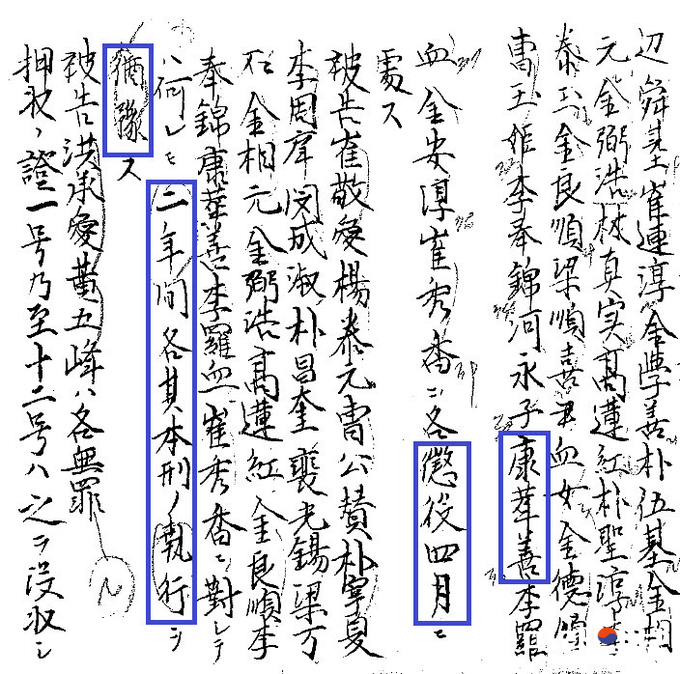 辺舜圭崔連淳金學善朴伍基金相
元金弼浩林真実高蓮紅朴聖淳李
泰玉金良順梁順喜尹血女金德順
曺玉姫李奉錦河永子康萃善李羅
血金安淳崔秀香ニ各懲役四月ニ
處ス
被告崔敬愛楊泰元曺公賛朴寧夏
李周彦閔成淑朴昌奎裵光錫梁万
石金相元金弼浩高蓮紅金良順李
奉錦康萃善李羅血崔秀香ニ對シテ
ハ何レモ二年間各其本刑ノ執行ヲ
猶豫ス
被告洪承愛黄五峰ハ各無罪
押収ノ證一号乃至十二号ハ之ヲ没収シ